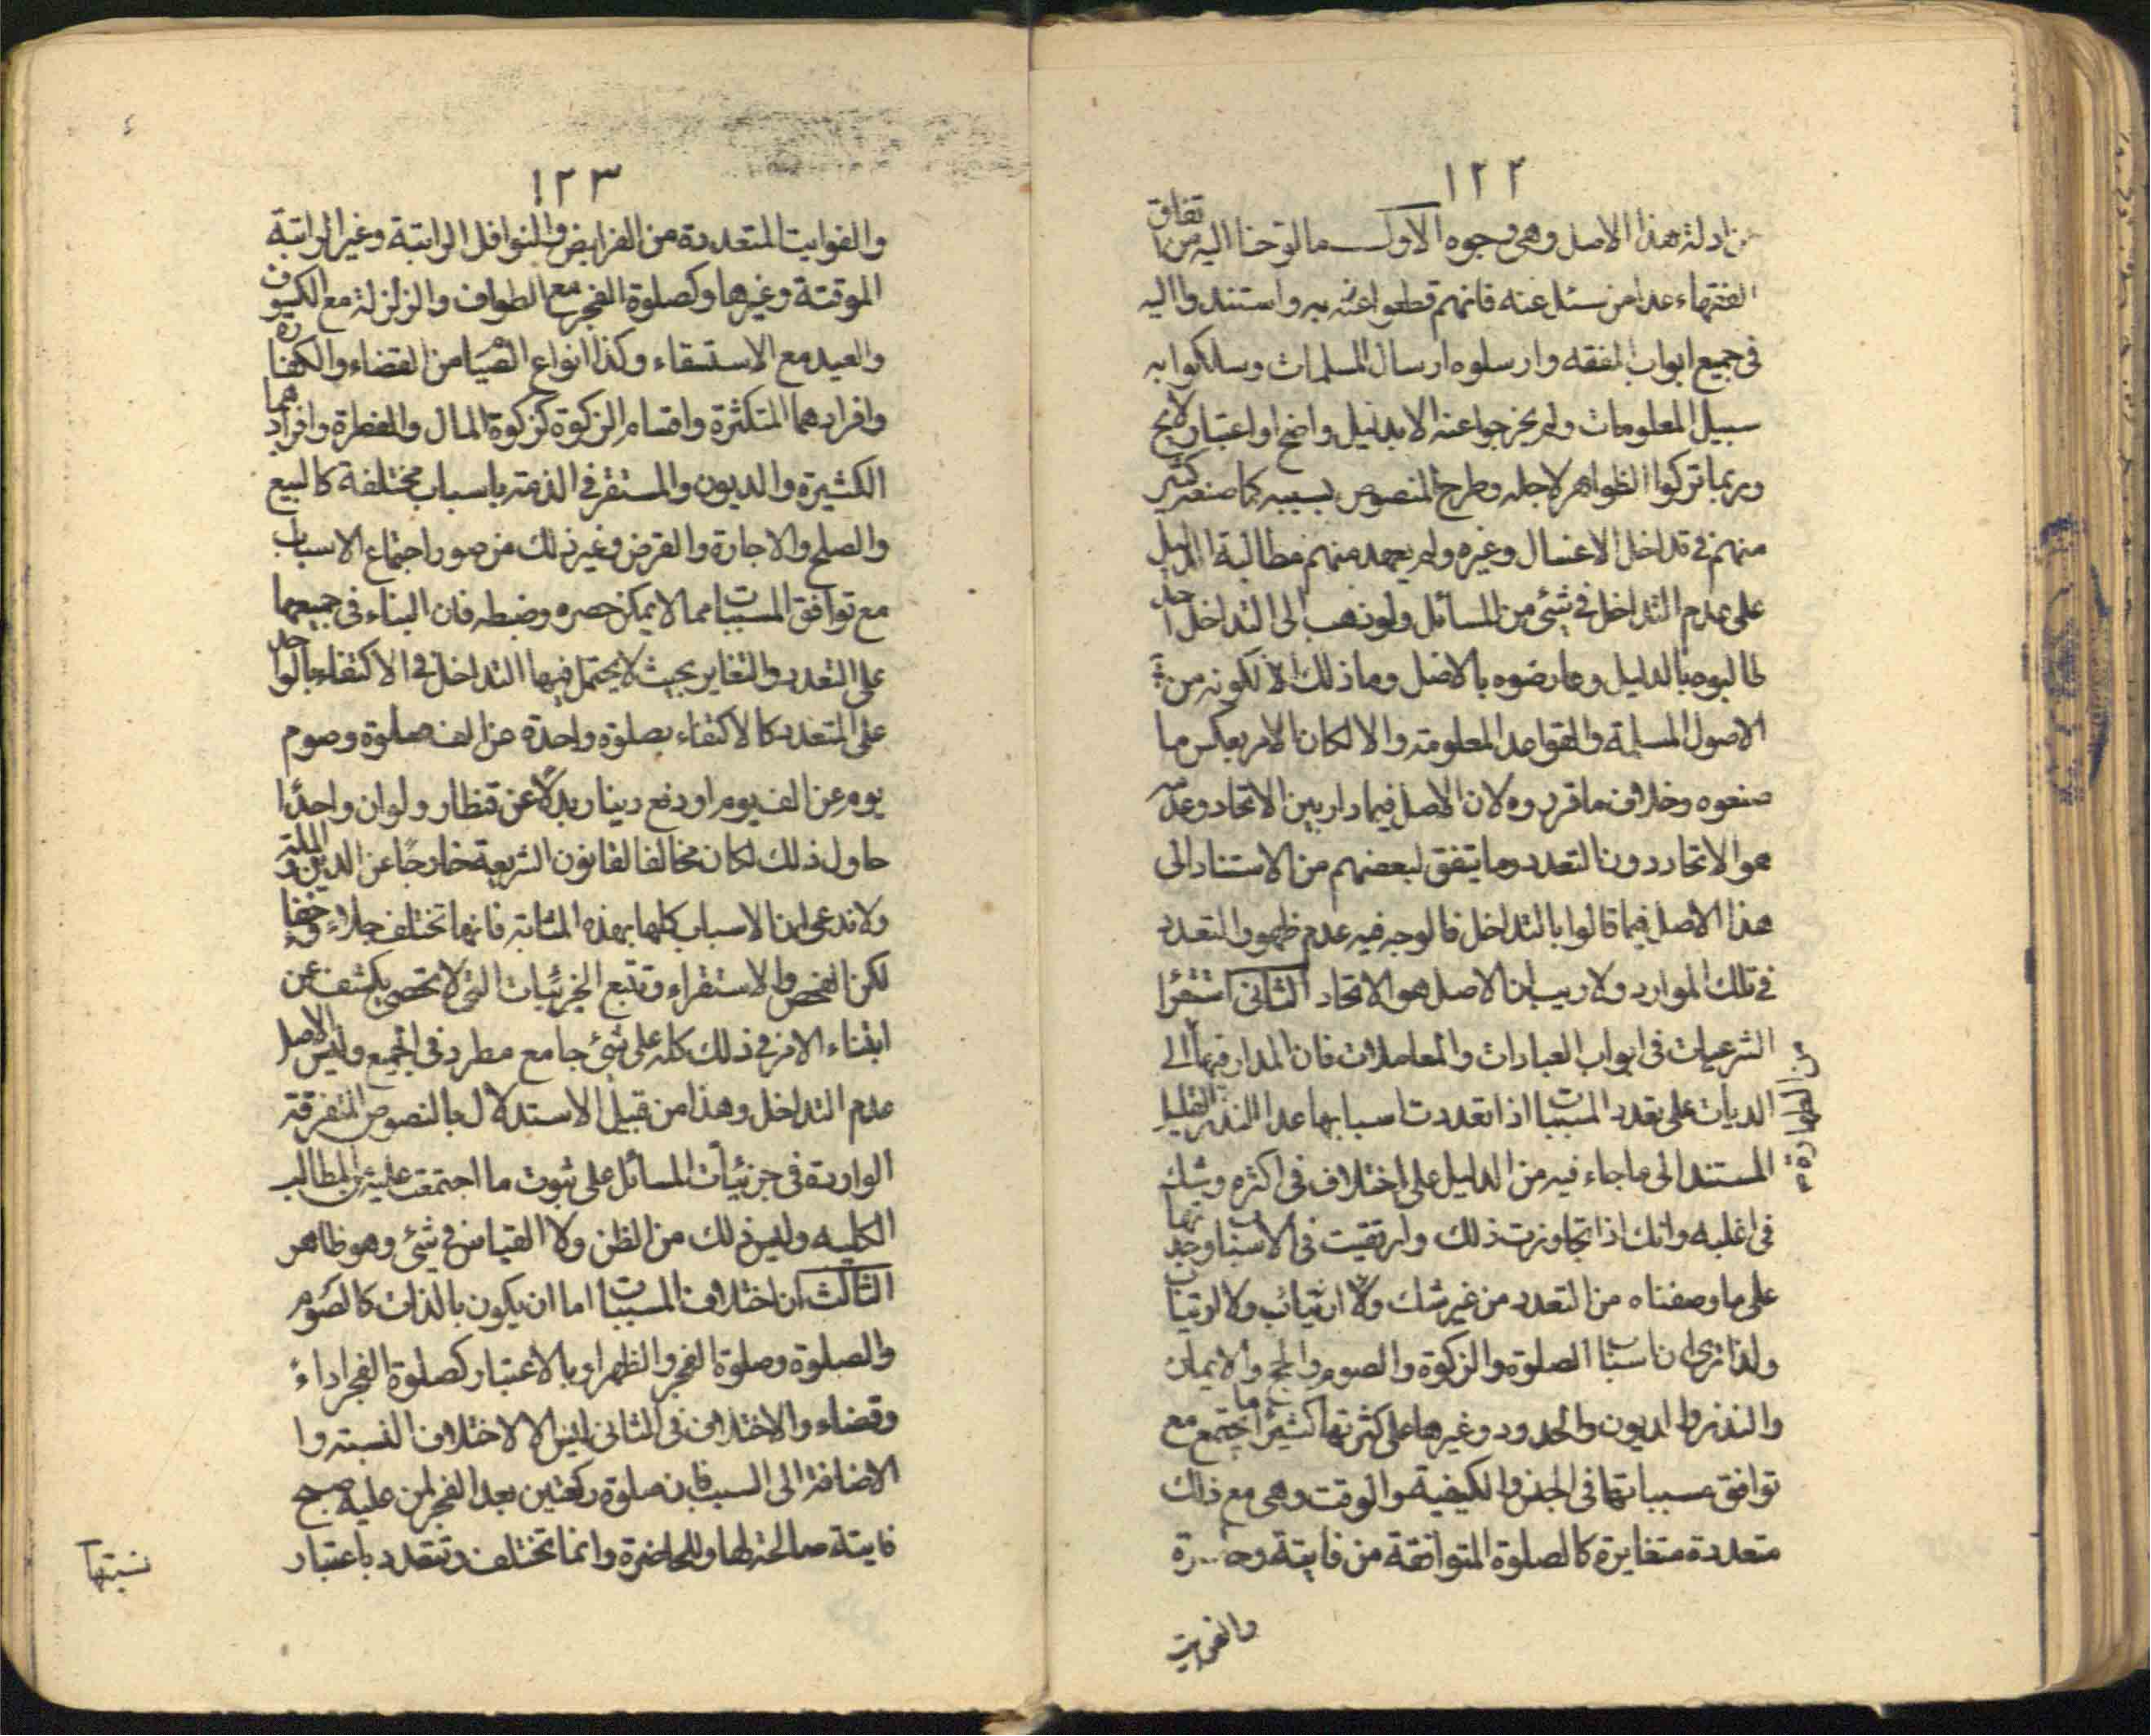 ١٢٢
من ادلة هذا الاصل وهى وجوه الاول ما لوّحنا اليه من اتفاق
الفقهاء عدا من ستل عنه فانهم قطعوا به واستندوا اليه
فى جميع ابواب الفقه وارسلوه ارسال المسلمات وسلكوا به
سبيل المعلومات ولم يخرجوا عنه الا بدليل واضح او اعتبار لايح
وربما تركوا الظواهر لاجله وطرح النصوص بسببه كما صنعه كثير
منهم فى تداخل الاغسال وغيره ولم يعهد منهم مطالبة الدليل
على عدم التداخل فى شئ من المسائل ولو ذهب الى التداخل احد
طالبوه بالدليل وعارضوه بالاصل وما ذلك الا لكونه من
الاصول المسلمة والقواعد المعلومة والا لكان الامر بعكس ما
صنعوه وخلاف ما قرروه لان الاصل فيما دار بين الاتحاد وعدمه
هو الاتحاد دون التعدد وما يتفق لبعضهم من الاستناد الى
هذا الاصل فيما قالوا بالتداخل فالوجه فيه عدم ظهور التعدد
فى تلك الموارد ولا ريب ان الاصل هو الاتحاد الثانى استقراء
الشرعيات فى ابواب العبادات والمعاملات فان المدار فيها الى
من الطهارة
الديات على تعدد المسببات اذا تعددت اسبابها عدا النذر القليل
المستند الى ما جاء فيه من الدليل على اختلاف فى اكثره وشك
فى اغلبه وانك اذا تجاوزت ذلك وارتقيت فى الاسباب وجدتها
على ما وصفناه من التعدد من غير شك ولا ارتياب ولا
ولذا ترى ان اسباب الصلوة والزكوة والصوم والحج والايمان
والنذر والديون والحدود وغيرها على كثرتها كثيرا ما يجتمع مع
توافق مسبباتها فى الجنس والكيفية والوقت وهى مع ذلك
متعددة متغايرة كالصلوة المتوافقة من فايتة وحاضرة
والفوايت
١٢٣
والفوايت المتعددة من الفرايض والنوافل الراتبة وغير الراتبة
الموقتة وغيرها وكصلوة الفجر مع الطواف والزلزلة مع الكسوف
والعيد مع الاستسقاء وكذا انواع الصيام من القضاء والكفارة
وافرادهما المتكثرة واقسام الزكوة كزكوة المال والفطرة وافرادهما
الكثيرة والديون والمستقر فى الذمة باسباب مختلفة كالبيع
والصلح والاجارة والقرض وغير ذلك من صور اجتماع الاسباب
مع توافق المسببات مما لا يمكن حصره وضبطه فان البناء فى جميعها
على التعدد والتغاير بحيث لا يحتمل فيها التداخل فى الاكتفاء بالواحد
على المتعدد كالاكتفاء بصلوة واحدة عن الف صلوة وصوم
يوم عن الف يوم او دفع دينار بدلا عن قنطار ولو ان واحدا
حاول ذلك لكان مخالفا لقانون الشريعة خارجا عن الدين والملة
ولا ندعى ان الاسباب كلها بهذه المثابة فانها تختلف جلاء وخفاء
لكن الفحص والاستقراء وتتبع الجزئيات التى لا تحصى يكشف عن
ابتناء الامر فى ذلك كله على شئ جامع مطرد فى الجميع وليس الا اصل
عدم التداخل وهذا من قبيل الاستدلال بالنصوص المتفرقة
الواردة فى جزئيات المسائل على ثبوت ما اجتمعت عليه من المطالب
الكلية وليس ذلك من الظن ولا القياس فى شئ وهو ظاهر
الثالث ان اختلاف المسببات اما ان يكون بالذات كالصوم
والصلوة وصلوة الفجر والظهر او بالاعتبار كصلوة الفجر اداءً
وقضاء والاختلاف فى الثانى ليس الا لاختلاف النسبة وا
الاضافة الى السبب فان صلوة ركعتين بعد الفجر لمن عليه صبح
فايتة صالحة لها وللحاضرة وانما تختلف وتتعدد باعتبار
نسبتها